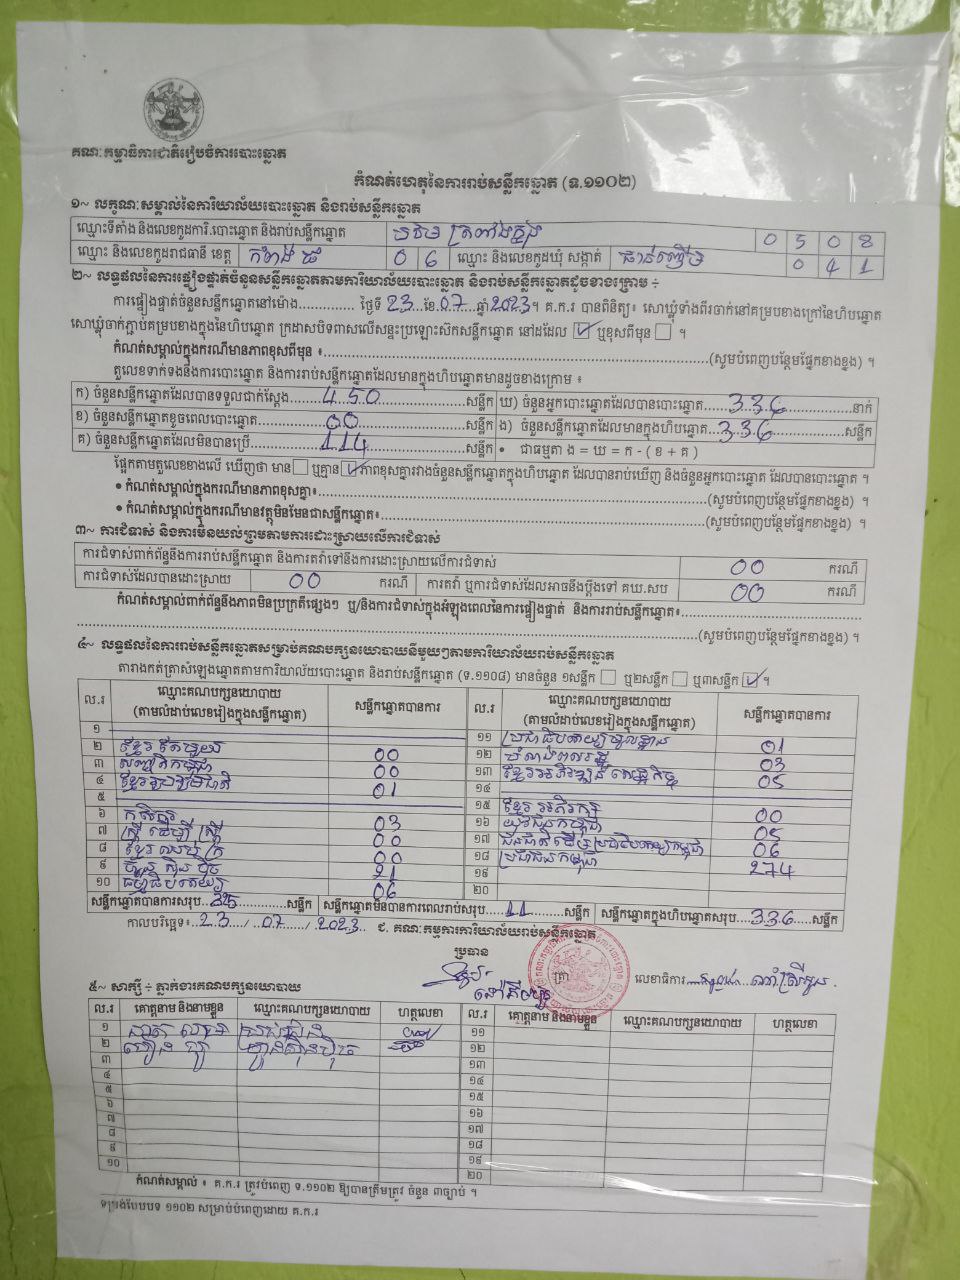 គណៈកម្មាធិការជាតិរៀបចំការបោះឆ្នោត
កំណត់ហេតុនៃការរាប់សន្លឹកឆ្នោត (ទ.១១០២)
១~ លក្ខណៈសម្គាល់នៃការិយាល័យបោះឆ្នោត និងរាប់សន្លឹកឆ្នោត
ឈ្មោះទីតាំង និងលេខកូដការិ.បោះឆ្នោត និងរាប់សន្លឹកឆ្នោត 0 5 0 8
ឈ្មោះ និងលេខកូដរាជធានី ខេត្ត កំពង់ធំ 0 6 ឈ្មោះ និងលេខកូដឃុំ សង្កាត់ 0 4 1
២~ លទ្ធផលនៃការផ្ទៀងផ្ទាត់ចំនួនសន្លឹកឆ្នោតតាមការិយាល័យបោះឆ្នោត និងរាប់សន្លឹកឆ្នោតដូចខាងក្រោម ÷
ការផ្ទៀងផ្ទាត់ចំនួនសន្លឹកឆ្នោតនៅម៉ោង.............. ថ្ងៃទី 23 ខែ 07 ឆ្នាំ 2023។ គ.ក.រ បានពិនិត្យ៖ សោឃ្លុំទាំងពីរចាក់នៅគម្របខាងក្រៅនៃហិបឆ្នោត
សោឃ្លុំចាក់ភ្ជាប់គម្របខាងក្នុងនៃហិបឆ្នោត ក្រដាសបិទពាសលើសន្ទះប្រឡោះសិកសន្លឹកឆ្នោត នៅដដែល ☑ ឬខុសពីមុន ☐ ។
កំណត់សម្គាល់ក្នុងករណីមានភាពខុសពីមុន ៖..............(សូមបំពេញបន្ថែមផ្នែកខាងខ្នង) ។
តួលេខទាក់ទងនឹងការបោះឆ្នោត និងការរាប់សន្លឹកឆ្នោតដែលមានក្នុងហិបឆ្នោតមានដូចខាងក្រោម ៖
ក) ចំនួនសន្លឹកឆ្នោតដែលបានទទួលជាក់ស្តែង 450 សន្លឹក ឃ) ចំនួនអ្នកបោះឆ្នោតដែលបានបោះឆ្នោត 336 នាក់
ខ) ចំនួនសន្លឹកឆ្នោតខូចពេលបោះឆ្នោត 00 សន្លឹក ង) ចំនួនសន្លឹកឆ្នោតដែលមានក្នុងហិបឆ្នោត 336 សន្លឹក
គ) ចំនួនសន្លឹកឆ្នោតដែលមិនបានប្រើ 114 សន្លឹក • ជាធម្មតា ង = ឃ = ក - ( ខ + គ )
ផ្អែកតាមតួលេខខាងលើ ឃើញថា មាន ☐ ឬគ្មាន ☑ ភាពខុសគ្នារវាងចំនួនសន្លឹកឆ្នោតក្នុងហិបឆ្នោត ដែលបានរាប់ឃើញ និងចំនួនអ្នកបោះឆ្នោត ដែលបានបោះឆ្នោត ។
• កំណត់សម្គាល់ក្នុងករណីមានភាពខុសគ្នា៖..............(សូមបំពេញបន្ថែមផ្នែកខាងខ្នង) ។
• កំណត់សម្គាល់ក្នុងករណីមានវត្ថុមិនមែនជាសន្លឹកឆ្នោត៖..............(សូមបំពេញបន្ថែមផ្នែកខាងខ្នង) ។
៣~ ការជំទាស់ និងការមិនយល់ព្រមតាមការដោះស្រាយលើការជំទាស់
ការជំទាស់ពាក់ព័ន្ធនឹងការរាប់សន្លឹកឆ្នោត និងការតវ៉ាទៅនឹងការដោះស្រាយលើការជំទាស់ 00 ករណី
ការជំទាស់ដែលបានដោះស្រាយ 00 ករណី ការតវ៉ា ឬការជំទាស់ដែលអាចនឹងប្តឹងទៅ គឃ.សប 00 ករណី
កំណត់សម្គាល់ពាក់ព័ន្ធនឹងភាពមិនប្រក្រតីផ្សេងៗ ឬ/និងការជំទាស់ក្នុងអំឡុងពេលនៃការផ្ទៀងផ្ទាត់ និងការរាប់សន្លឹកឆ្នោត៖..............
..............(សូមបំពេញបន្ថែមផ្នែកខាងខ្នង) ។
៤~ លទ្ធផលនៃការរាប់សន្លឹកឆ្នោតសម្រាប់គណបក្សនយោបាយនីមួយៗតាមការិយាល័យរាប់សន្លឹកឆ្នោត
តារាងកត់ត្រាសំឡេងឆ្នោតតាមការិយាល័យបោះឆ្នោត និងរាប់សន្លឹកឆ្នោត (ទ.១១០៨) មានចំនួន ១សន្លឹក ☐ ឬ២សន្លឹក ☐ ឬ៣សន្លឹក ☑ ។
ល.រ ឈ្មោះគណបក្សនយោបាយ (តាមលំដាប់លេខរៀងក្នុងសន្លឹកឆ្នោត) សន្លឹកឆ្នោតបានការ ល.រ ឈ្មោះគណបក្សនយោបាយ (តាមលំដាប់លេខរៀងក្នុងសន្លឹកឆ្នោត) សន្លឹកឆ្នោតបានការ
១ ១១ ប្រជាធិបតេយ្យមូលដ្ឋាន 01
២ ខ្មែរតែមួយ 00 ១២ 03
៣ សញ្ជាតិកម្ពុជា 00 ១៣ ខ្មែរអភិវឌ្ឍន៍សេដ្ឋកិច្ច 05
៤ ខ្មែររួបរួមជាតិ 01 ១៤
៥ ១៥ ខ្មែរអភិរក្ស 00
៦ កសិករ 03 ១៦ យុវជនកម្ពុជា 05
៧ ស្ត្រីដើម្បីស្ត្រី 00 ១៧ ជនជាតិដើមប្រជាធិបតេយ្យកម្ពុជា 06
៨ ខ្មែរឈប់ក្រ 00 ១៨ ប្រជាជនកម្ពុជា 274
៩ ហ៊្វុនស៊ិនប៉ិច 21 ១៩
១០ ធម្មាធិបតេយ្យ 06 ២០
សន្លឹកឆ្នោតបានការសរុប 325 សន្លឹក សន្លឹកឆ្នោតមិនបានការពេលរាប់សរុប 11 សន្លឹក សន្លឹកឆ្នោតក្នុងហិបឆ្នោតសរុប 336 សន្លឹក
កាលបរិច្ឆេទ៖ 23 / 07 / 2023 ជ. គណៈកម្មការការិយាល័យរាប់សន្លឹកឆ្នោត
ប្រធាន
ត្រា លេខាធិការ
៥~ សាក្សី ÷ ភ្នាក់ងារគណបក្សនយោបាយ
ល.រ គោត្តនាម និងនាមខ្លួន ឈ្មោះគណបក្សនយោបាយ ហត្ថលេខា ល.រ គោត្តនាម និងនាមខ្លួន ឈ្មោះគណបក្សនយោបាយ ហត្ថលេខា
១ ១១
២ ហ៊្វុនស៊ិនប៉ិច ១២
៣ ១៣
៤ ១៤
៥ ១៥
៦ ១៦
៧ ១៧
៨ ១៨
៩ ១៩
១០ ២០
កំណត់សម្គាល់ ៖ គ.ក.រ ត្រូវបំពេញ ទ.១១០២ ឱ្យបានត្រឹមត្រូវ ចំនួន ៣ច្បាប់ ។
ទម្រង់បែបបទ ១១០២ សម្រាប់បំពេញដោយ គ.ក.រ